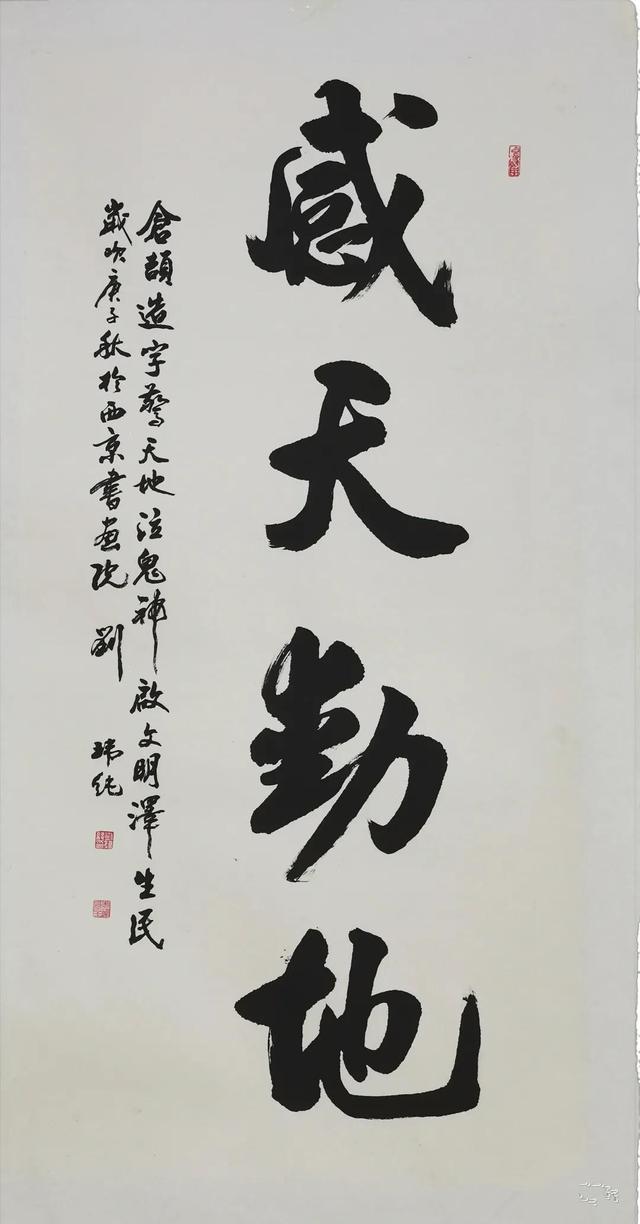 感天動地
倉頡造字驚天地泣鬼神啟文明澤生民
歲次庚子秋於西京書畫院 劉 瑋純